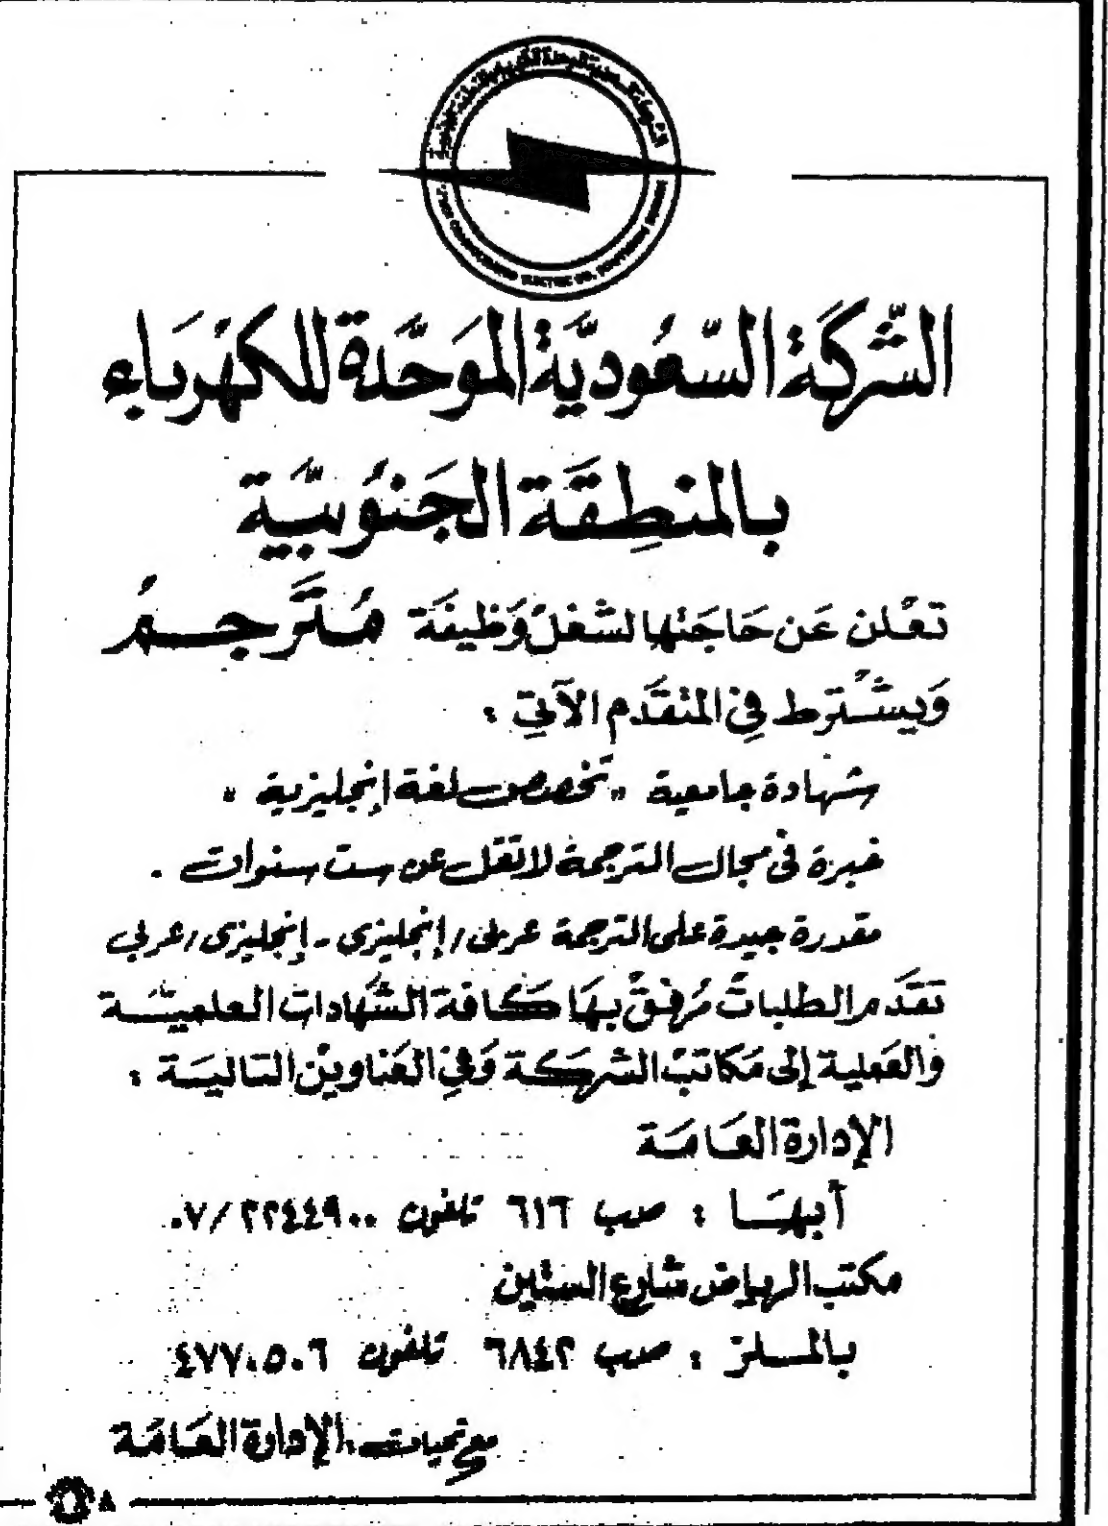 الشركة السعودية الموحدة للكهرباء
بالمنطقة الجنوبية
تعلن عن حاجتها لشغل وظيفة مترجم
ويشترط في المتقدم الآتي :
شهادة جامعية " تخصص لغة إنجليزية "
خبرة في مجال الترجمة لا تقل عن ست سنوات .
مقدرة جيدة على الترجمة عربي / إنجليزي - إنجليزي / عربي
تقدم الطلبات مرفق بها كافة الشهادات العلمية
والعملية إلى مكاتب الشركة وفي العناوين التالية :
الإدارة العامة
أبها : صب ٦١٦ تلفون ٠٧/٢٢٤٤٩٠٠
مكتب الرياض شارع الستين
بالملز : صب ٦٨٤٢ تلفون ٤٧٧٠٥٠٦
مع تحيات .. الإدارة العامة
٨